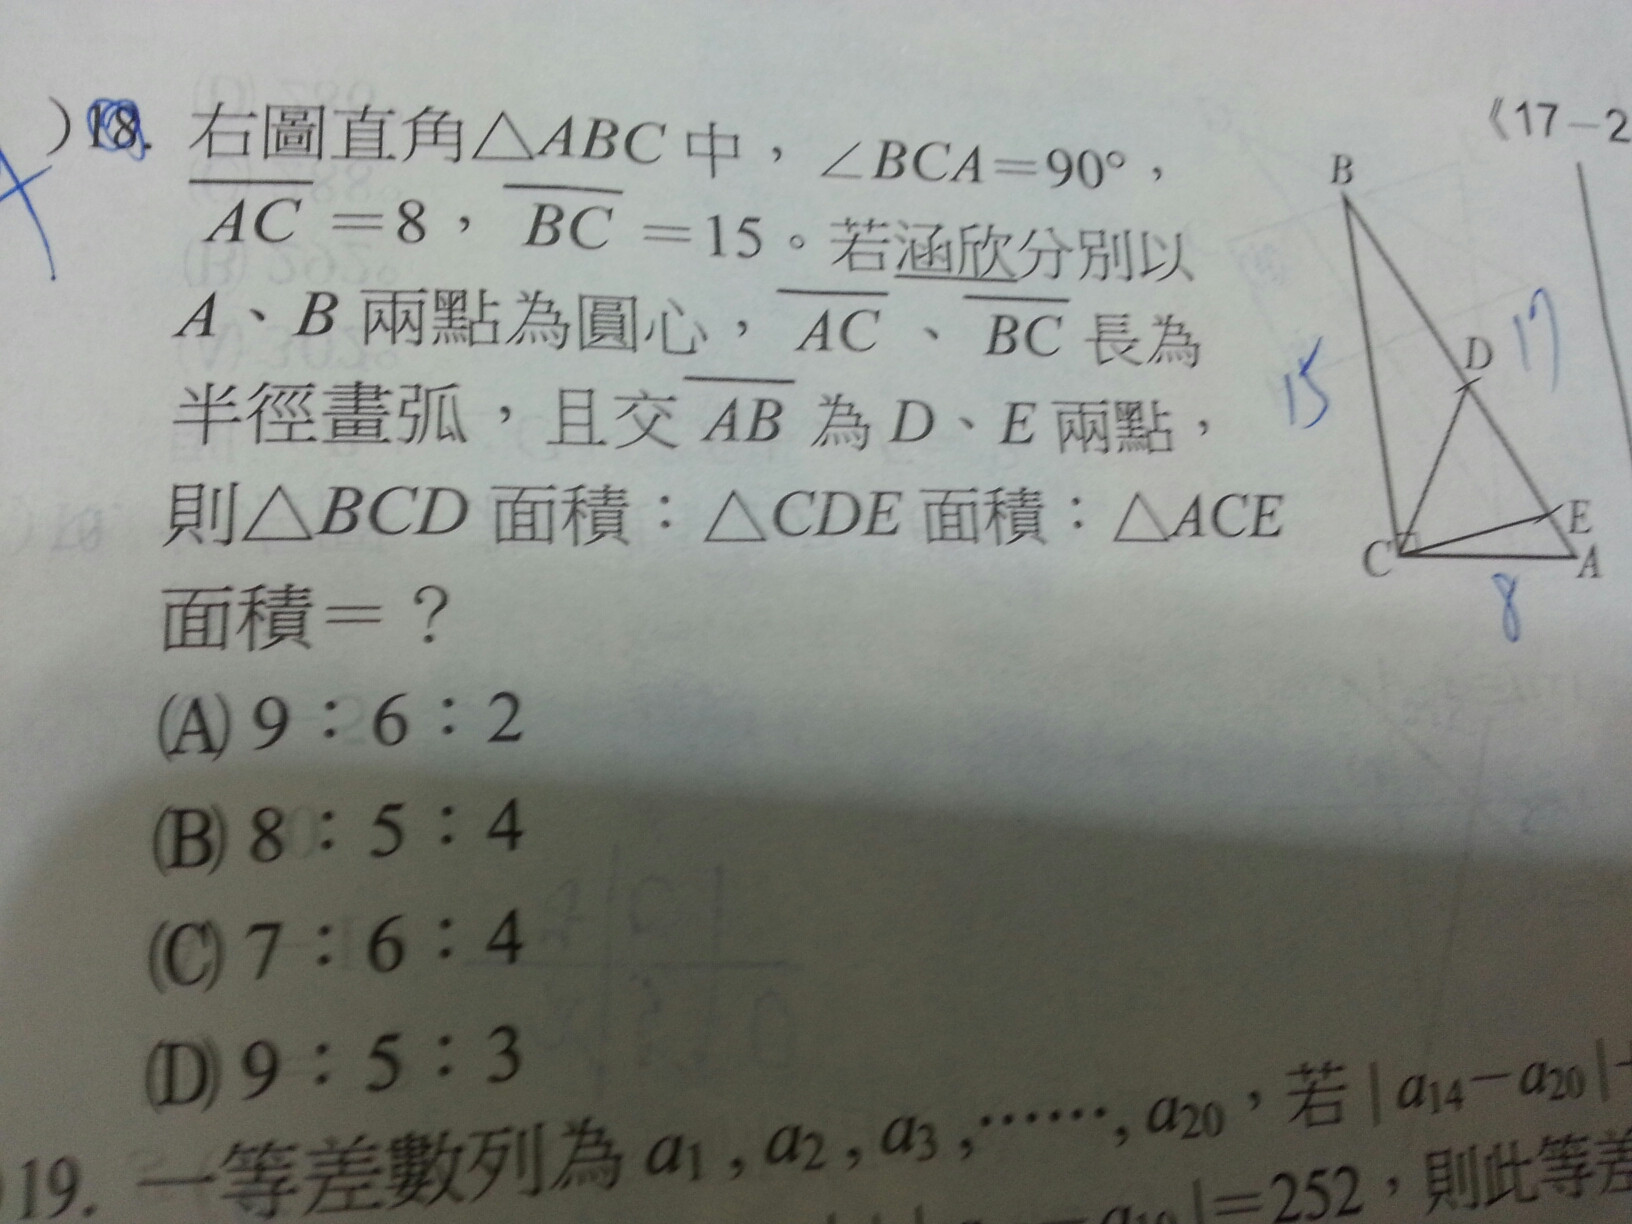 )18. 右圖直角△ABC 中，∠BCA=90°，
AC =8，BC =15。若涵欣分別以
A、B 兩點為圓心，AC、BC 長為
半徑畫弧，且交 AB 為 D、E 兩點，
則△BCD 面積：△CDE 面積：△ACE
面積=？
(A) 9：6：2
(B) 8：5：4
(C) 7：6：4
(D) 9：5：3
《17-2
B
D
17
15
E
C
A
8
19. 一等差數列為 a1 , a2 , a3 ,……, a20，若 | a14-a20 |+
|=252，則此等差